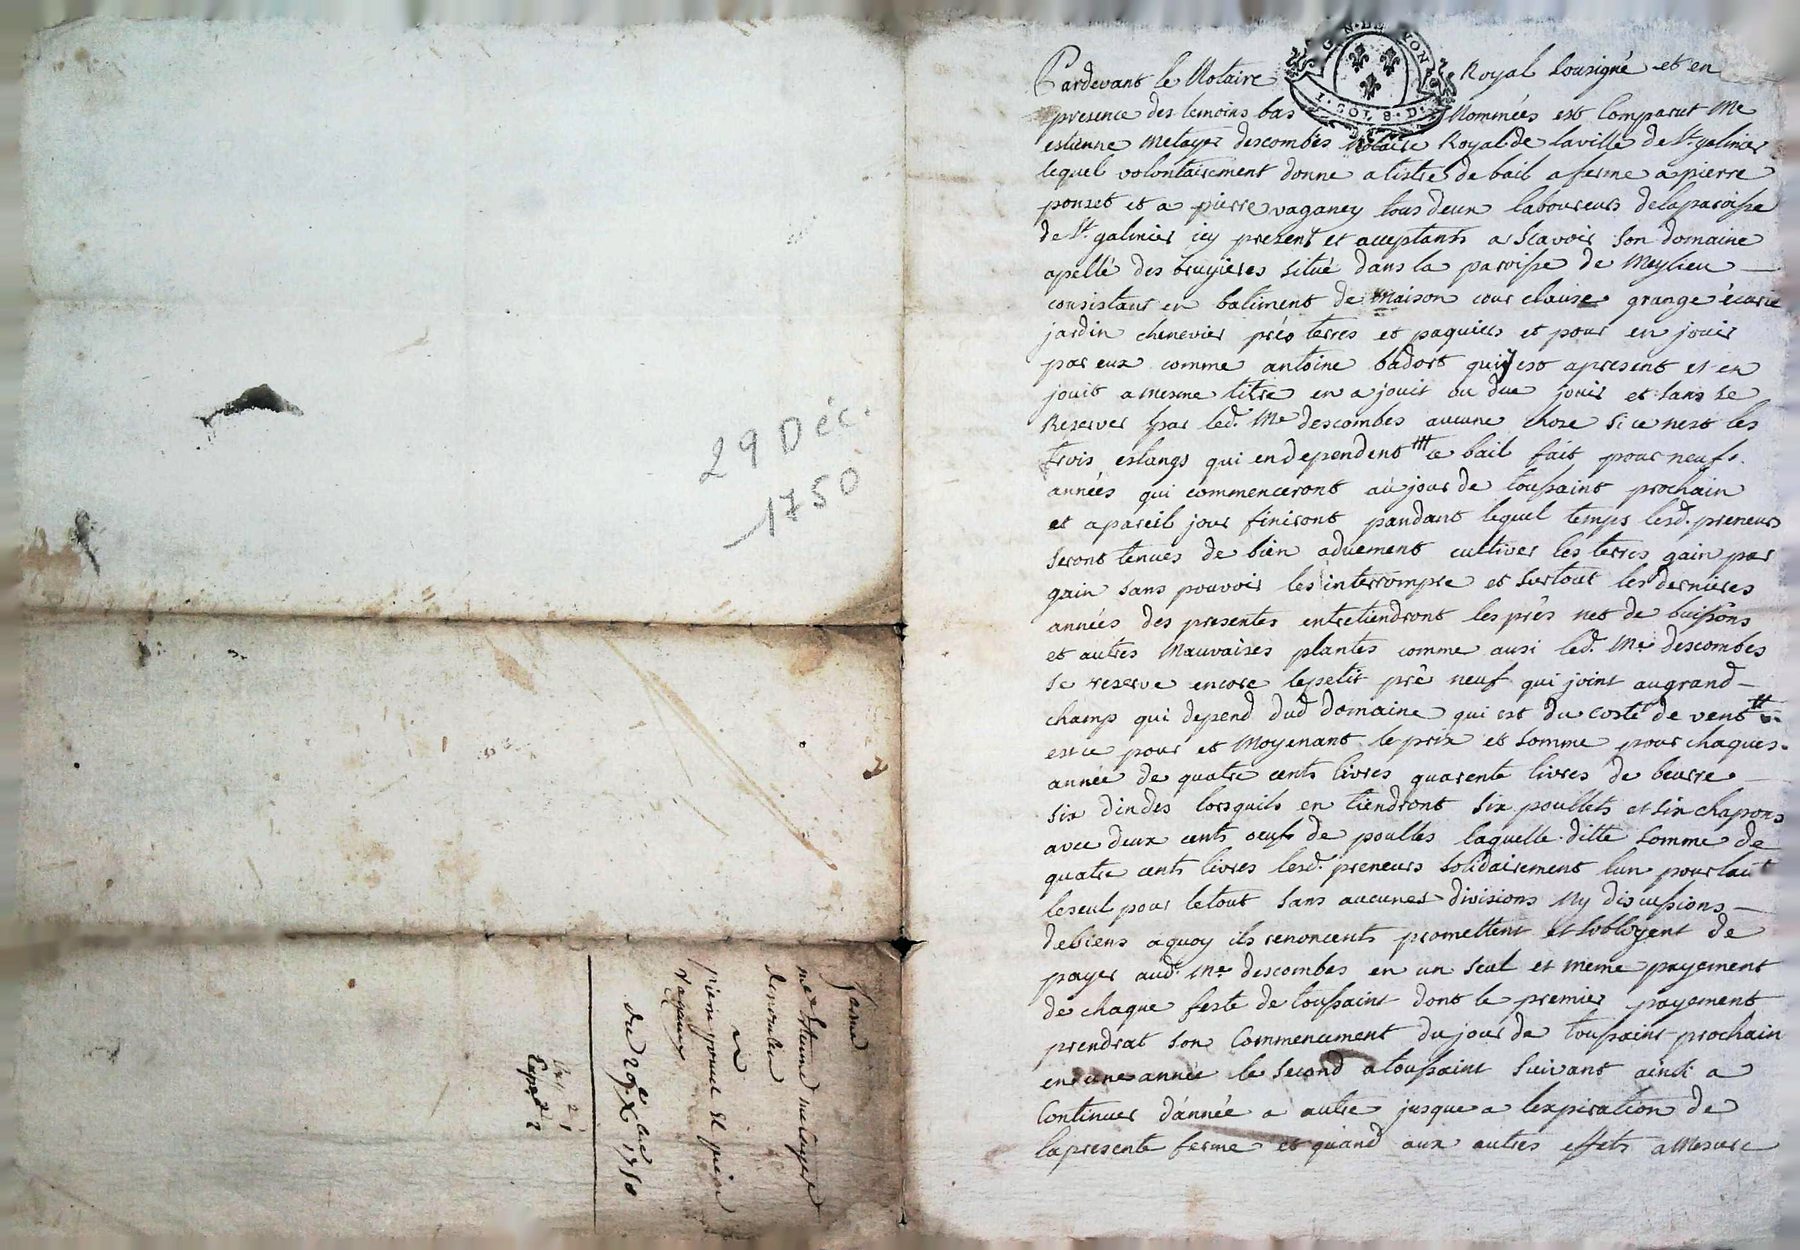 29 Déc.
1750
ferme
me Estienne metayer
descombes
a
pierre ponset et pierre
vaganey
du 29e Xbre 1750
G N. DE YON
I. SOL 8. D.
Pardevant le Notaire Royal Sousigné et en
presence des temoins bas Nommées est Comparut Me
estienne Metayer descombes Notaire Royal de laville de St galmier
lequel volontairement donne a tistre de bail a ferme a pierre
ponset et a pierre vaganey tous deux laboureurs delaparoisse
de St galmier icy present et acceptants a Scavoir Son domaine
apellé des bruyieres situé dans la paroisse de Meylieu
consistant en batiment de Maison cour clause grange écurie
jardin chenevier prés terres et paquiers et pour en jouir
par eux comme antoine badort quiy est apresent et en
jouit a mesme titre en a jouit ou due jouir et sans se
Reserver par led. Me descombes aucune chose si ce nest les
trois estangs qui endependent ce bail fait pour neufs
années qui commenceront au jour de toussaint prochain
et apareil jour finiront pandant lequel temps lesd. preneurs
seront tenues de bien aduement cultiver les terres gain par
gain sans pouvoir les interrompre et surtout les dernieres
années des presentes entretiendront les prés net de buissons
et autres Mauvaises plantes comme ausi led. Me descombes
se reserve encore lepetit pré neuf qui joint augrand
champ qui depend dud domaine qui est du costé de vent
est ce pour et Moyenant le prix et somme pour chaques
année de quatre cents livres quarente livres de beurre
six dindes lorsquils en tiendront six poullets et six chapons
avec deux cents oeufs de poulles laquelle ditte somme de
quatre cents livres lesd. preneurs solidairement lun pour laut
leseul pour letout sans aucunes divisions Ny discussions
debiens aquoy ils renoncents promettent et sobligent de
payer aud. Me descombes en un seul et meme payement
de chaque feste de toussaint dont le premier payement
prendrat son Commencement du jour de toussaint prochain
en une année le second a toussaint suivant ainsi a
Continuer d'année a autre jusque a lexpiration de
lapresente ferme et quand aux autres effets aMesure